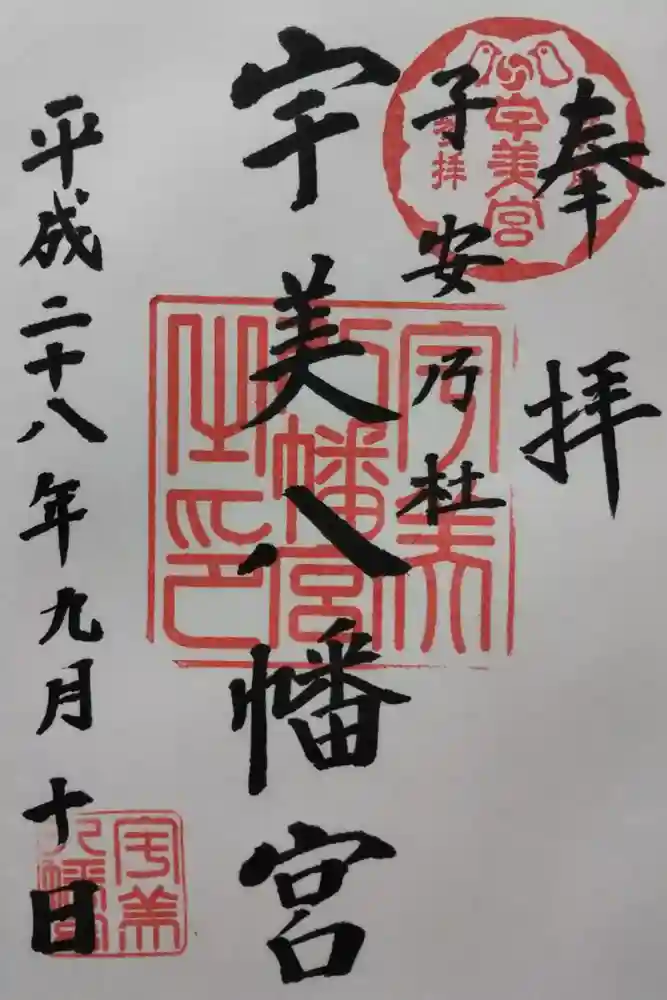 奉拝
子安乃杜
宇美八幡宮
平成二十八年九月十日
宇美宮
宇美八幡宮之印
宇美八幡宮